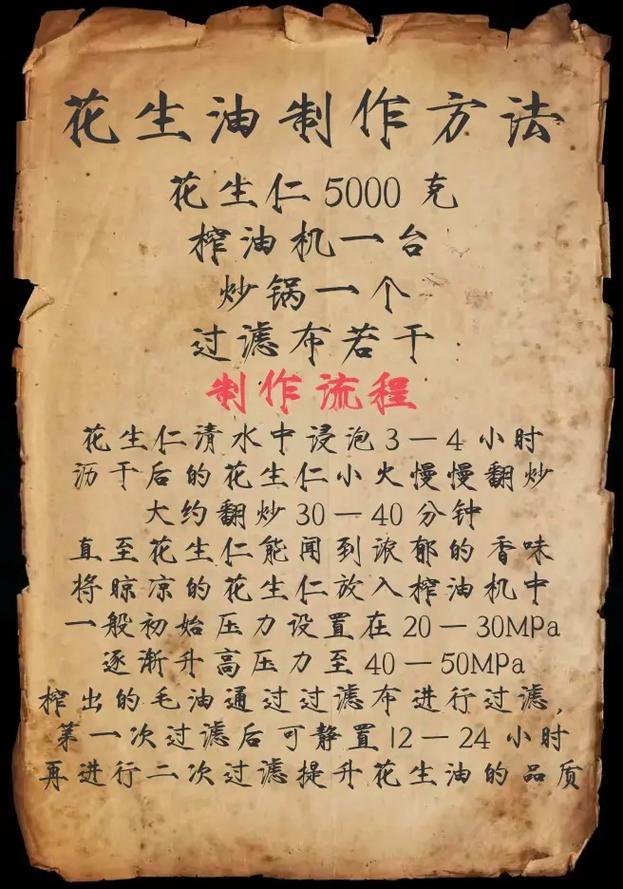 花生油制作方法
花生仁5000克
榨油机一台
炒锅一个
过滤布若干
制作流程
花生仁清水中浸泡3—4小时
沥干后的花生仁小火慢慢翻炒
大约翻炒30—40分钟
直至花生仁能闻到浓郁的香味
将晾凉的花生仁放入榨油机中
一般初始压力设置在20—30MPa
逐渐升高压力至40—50MPa
榨出的毛油通过过滤布进行过滤,
第一次过滤后可静置12—24小时
再进行二次过滤提升花生油的品质